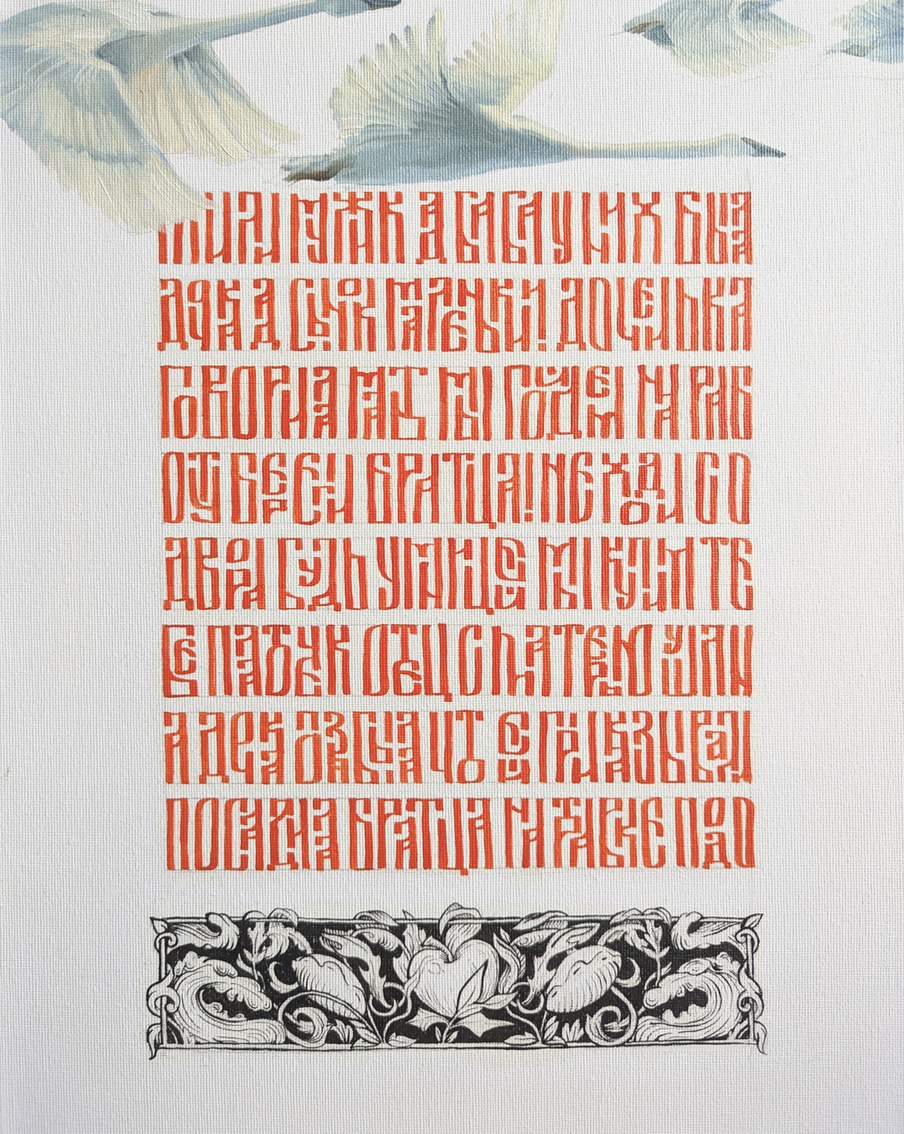 ЖИЛИ МУЖИК ДА БАБА У НИХ БЫЛА
ДОЧКА ДА СЫНОК МАЛЕНЬКИЙ! ДОЧЕНЬКА
ГОВОРИЛА МАТЬ МЫ ПОЙДЕМ НА РАБ
ОТУ БЕРЕГИ БРАТЦА! НЕ ХОДИ СО
ДВОРА БУДЬ УМНИЦЕЙ МЫ КУПИМ ТЕ
БЕ ПЛАТОЧЕК ОТЕЦ С МАТЕРЬЮ УШЛИ
А ДОЧКА ПОЗАБЫЛА ЧТО ЕЙ ПРИКАЗЫВАЛИ
ПОСАДИЛА БРАТЦА НА ТРАВКЕ ПОДО